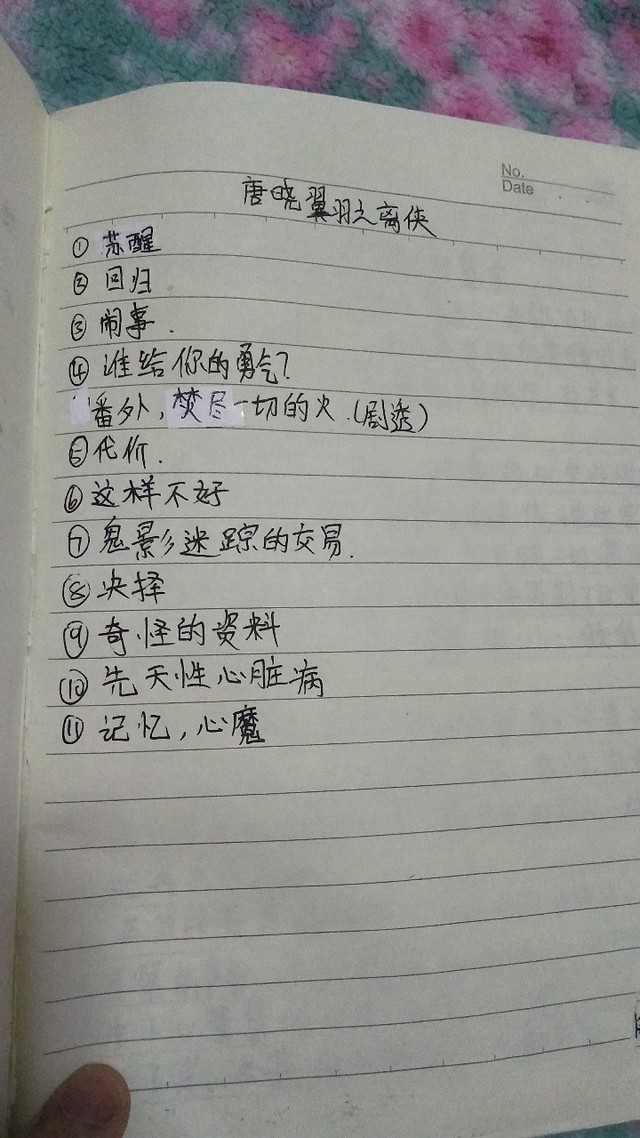 No.
Date
唐晓翼羽之离侠
① 苏醒
② 回归
③ 闹事.
④ 谁给你的勇气?
番外,焚尽一切的火.(剧透)
⑤ 代价.
⑥ 这样不好
⑦ 鬼影迷踪的交易.
⑧ 决择
⑨ 奇怪的资料
⑩ 先天性心脏病
⑪ 记忆,心魔